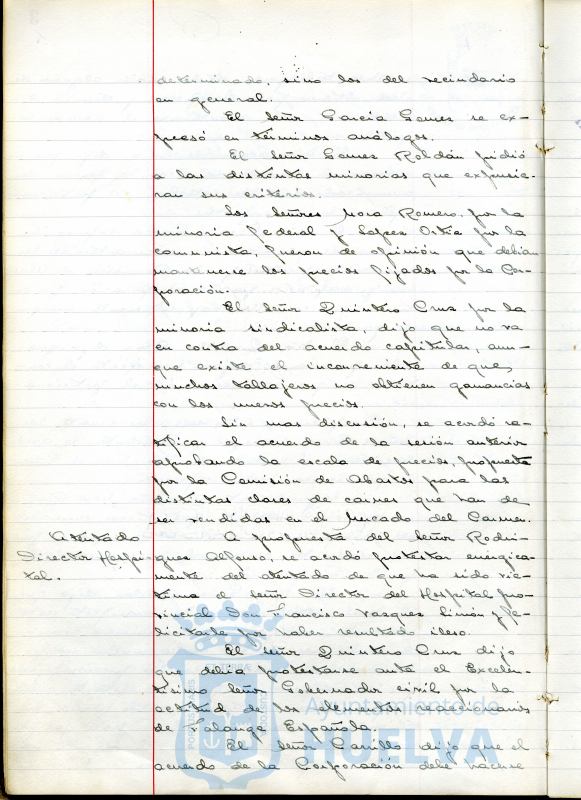 determinado, sino los del vecindario
en general.
El Señor García Gomez se ex-
presó en términos análogos.
El Señor Gomez Roldán pidió
a las distintas minorias que expusie-
ran sus criterios.
Los Señores Mora Romero, por la
minoria federal y Lopez Ortiz por la
comunista, fueron de opinión que debian
mantenerse los precios fijados por la Cor-
poración.
El Señor Quintero Cruz por la
minoria sindicalista, dijo que no va
en contra del acuerdo capitular, aun-
que existe el inconveniente de que,
muchos tablajeros no obtienen ganancias
con los nuevos precios.
Sin mas discusión, se acordó ra-
tificar el acuerdo de la sesión anterior
aprobando la escala de precios, propuesta
por la Comisión de Abastos para las
distintas clases de carnes que han de
ser vendidas en el Mercado del Carmen.
Atentado
Director Hospi-
tal.
A propuesta del Señor Rodri-
guez Alfonso, se acordó protestar energica-
mente del atentado de que ha sido vic-
tima el Señor Director del Hospital pro-
vincial Don Francisco Vazquez Limón y fe-
licitarle por haber resultado ileso.
El Señor Quintero Cruz dijo
que debia protestarse ante el Excelen-
tisimo Señor Gobernador civil por la
actitud de los elementos reaccionarios
de Falange Española.
El Señor Carrillo dijo que el
acuerdo de la Corporación debe hacerse
Ayuntamiento de
HUELVA